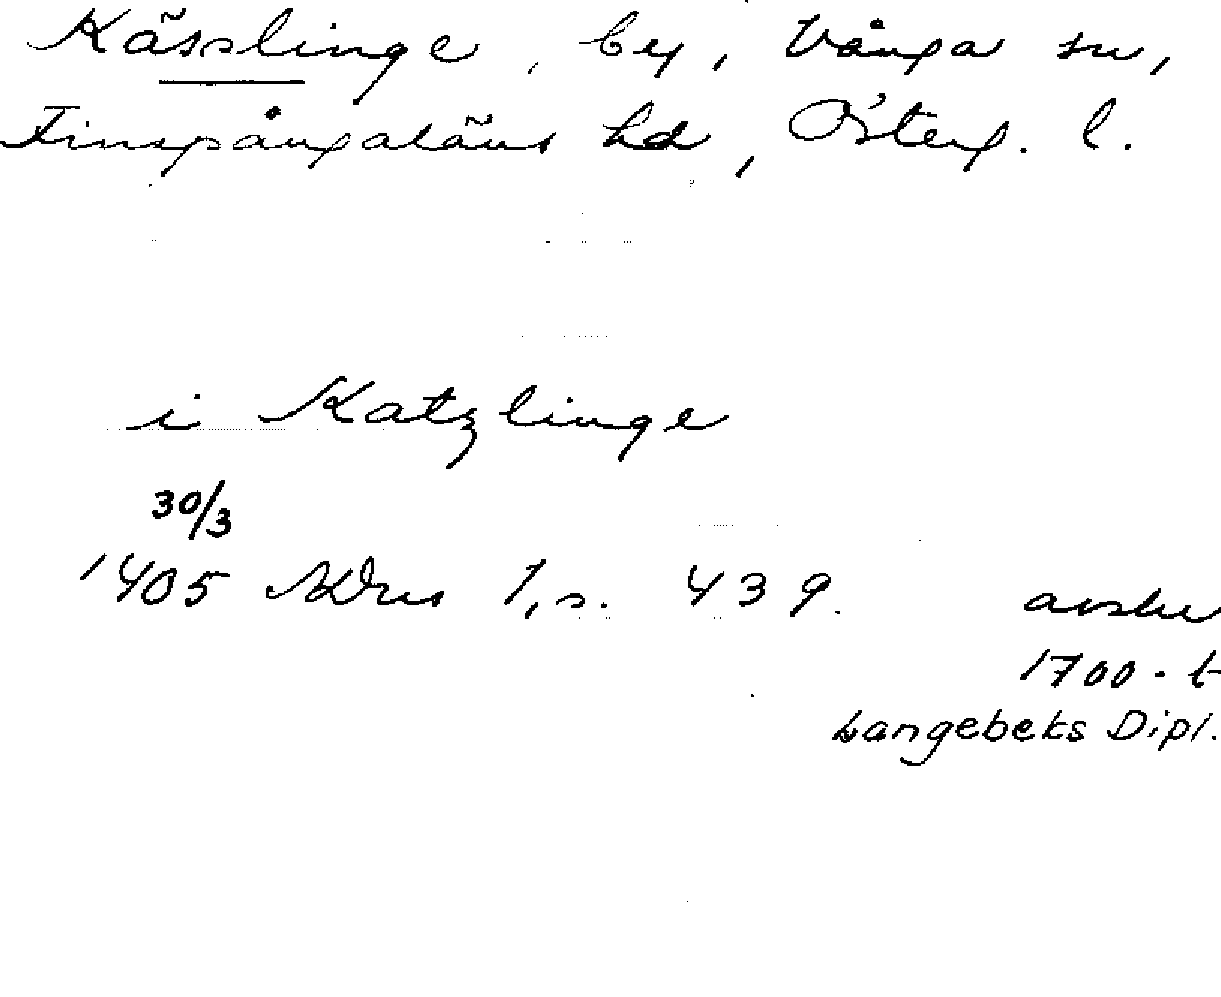 Kässlinge, by, Vånga sn,
Finspångaläns hd, Österg. l.
i Katzlinge
30/3
1405 NMDns 1, s. 439. avskr
1700-t
Langebeks Dipl.